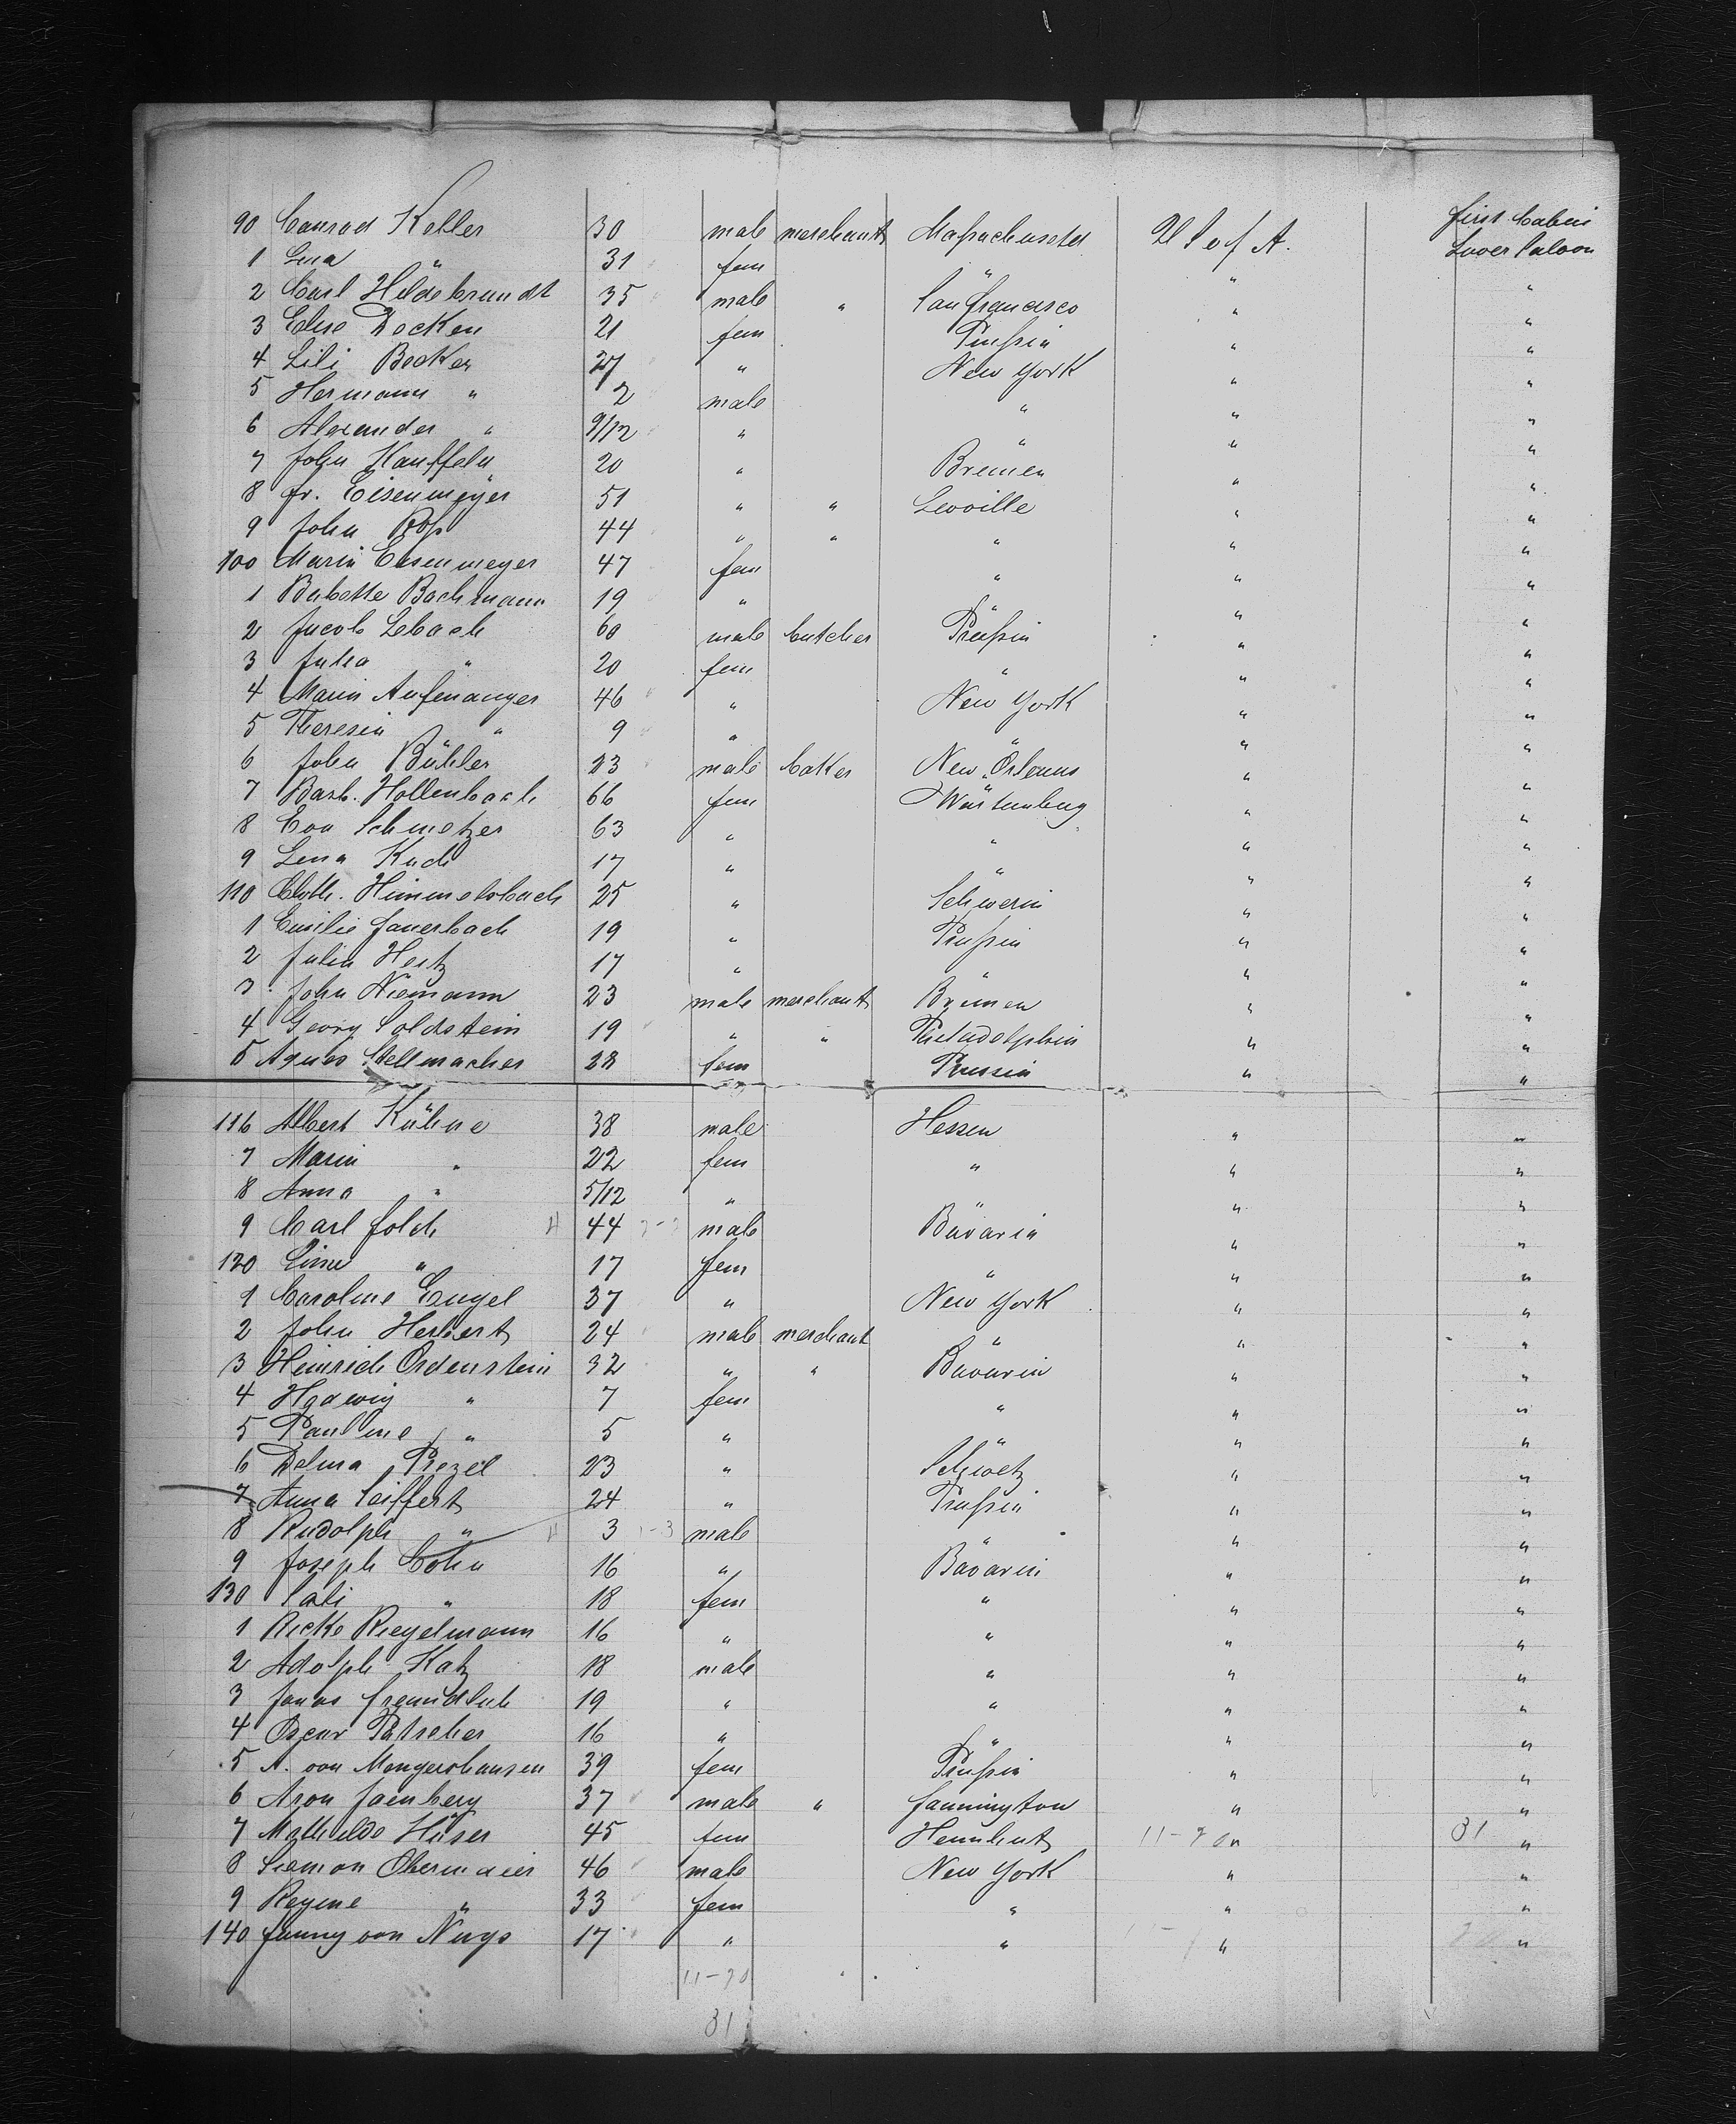 90 Conrad Keller 30 male merchant Massachusetts U S of A. first Cabin Lower Saloon
1 Lina " 31 fem " " "
2 Carl Hildebrandt 35 male " San francisco " "
3 Elise Docken 21 fem Prussia " "
4 Lili Becker 27 " New York " "
5 Hermann " 2 male " " "
6 Alexander " 9/12 " " " "
7 John Kauffeln 20 " Bremen " "
8 Fr. Eisenmeyer 51 " " Leoville " "
9 John Ross 44 " " " " "
100 Maria Eisenmeyer 47 fem " " "
1 Babette Bachmann 19 " " " "
2 Jacob Lebach 60 male butcher Prussia " "
3 Julia " 20 fem " " "
4 Maria Aufenanger 46 " New York " "
5 Theresia " 9 " " " "
6 John Bühler 23 male baker New Orleans " "
7 Barb. Hollenbach 66 fem Würtemberg " "
8 Eva Schmetzer 63 " " " "
9 Lena Kuch 17 " " " "
110 Cath. Himmelsbach 25 " Schwerin " "
1 Emilie fauerbach 19 " Prussia " "
2 Julia Hertz 17 " " " "
3 John Niemann 23 male merchant Bremen " "
4 Georg Soldstein 19 " " Philadelphia " "
5 Agnes Stellmacher 28 fem Prussia " "
116 Albert Kühne 38 male Hessen " "
7 Maria " 22 fem " " "
8 Anna " 5/12 " " " "
9 Carl folch 44 male Bavaria " "
120 Line " 17 fem " " "
1 Caroline Engel 37 " New York " "
2 John Herbert 24 male merchant " " "
3 Heinrich Ordenstein 32 " " Bavaria " "
4 Hedwig " 7 fem " " "
5 Pauline " 5 " " " "
6 Delma Prezel 23 " Schwetz " "
7 Anna Seiffert 24 " Prussia " "
8 Rudolph " 3 male " " "
9 Joseph Cohn 16 " Bavaria " "
130 Sali " 18 fem " " "
1 Ricke Riegelmann 16 " " " "
2 Adolph Katz 18 male " " "
3 Jonas freundlich 19 " " " "
4 Oscar 16 " " " "
5 A. von Mengershausen 39 fem Prussia " "
6 Aron 37 male " farmington " "
7 Mathilde Hüser 45 fem " 31 "
8 Siemon Obermaier 46 male New York " "
9 Regine " 33 fem " " "
140 fanny von Nuys 17 " " " "
11-20
31